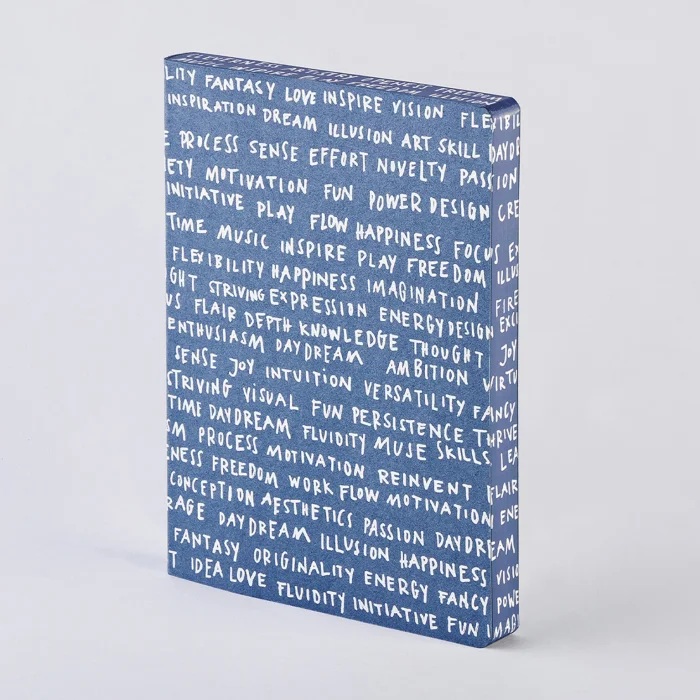 CLEVERNESS ARTISTRY ENERGY FREEDOM
MUSIC INSPIRE PLAY FREEDOM ILLUSION
LITY FANTASY LOVE INSPIRE VISION FLEXIBIL
INSPIRATION DREAM ILLUSION ART SKILL DAYDR
E PROCESS SENSE EFFORT NOVELTY PASSION
IETY MOTIVATION FUN POWER DESIGN CRE
INITIATIVE PLAY FLOW HAPPINESS FOCUS EX
TIME MUSIC INSPIRE PLAY FREEDOM ILLUS
FLEXIBILITY HAPPINESS IMAGINATION FIRE
IGHT STRIVING EXPRESSION ENERGY DESIGN EXCI
US FLAIR DEPTH KNOWLEDGE THOUGHT JOY
ENTHUSIASM DAYDREAM AMBITION VIRTU
SENSE JOY INTUITION VERSATILITY FANCY
STRIVING VISUAL FUN PERSISTENCE THRIVE
TIME DAYDREAM FLUIDITY MUSE SKILLS LEA
SM PROCESS MOTIVATION REINVENT FLAIR
ENESS FREEDOM WORK FLOW MOTIVATION ENE
CONCEPTION AESTHETICS PASSION DAYDREAM
RAGE DAYDREAM ILLUSION HAPPINESS VISIO
FANTASY ORIGINALITY ENERGY FANCY POWE
T IDEA LOVE FLUIDITY INITIATIVE FUN IMAG